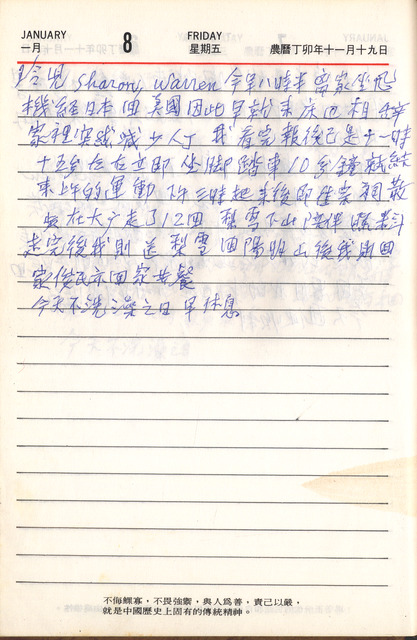 JANUARY 8 FRIDAY
一月 星期五 農曆丁卯年十一月十九日
兒 Sharon, Warren 今早八時半 坐飛
機經日本回美國因此早就來床 相
家裡 減少人丁 我看完報後已是十一時
十五分左右立即坐脚踏車10分鐘就結
束上午的運動 下午三時起來後即 散
在大 走了12回 梨雪下山
走完後我則送梨雪回陽明山後我則回
家俊民亦回家共餐
今天不洗澡之日早休息
不侮鰥寡，不畏強禦，與人爲善，責己以嚴，
就是中國歷史上固有的傳統精神。